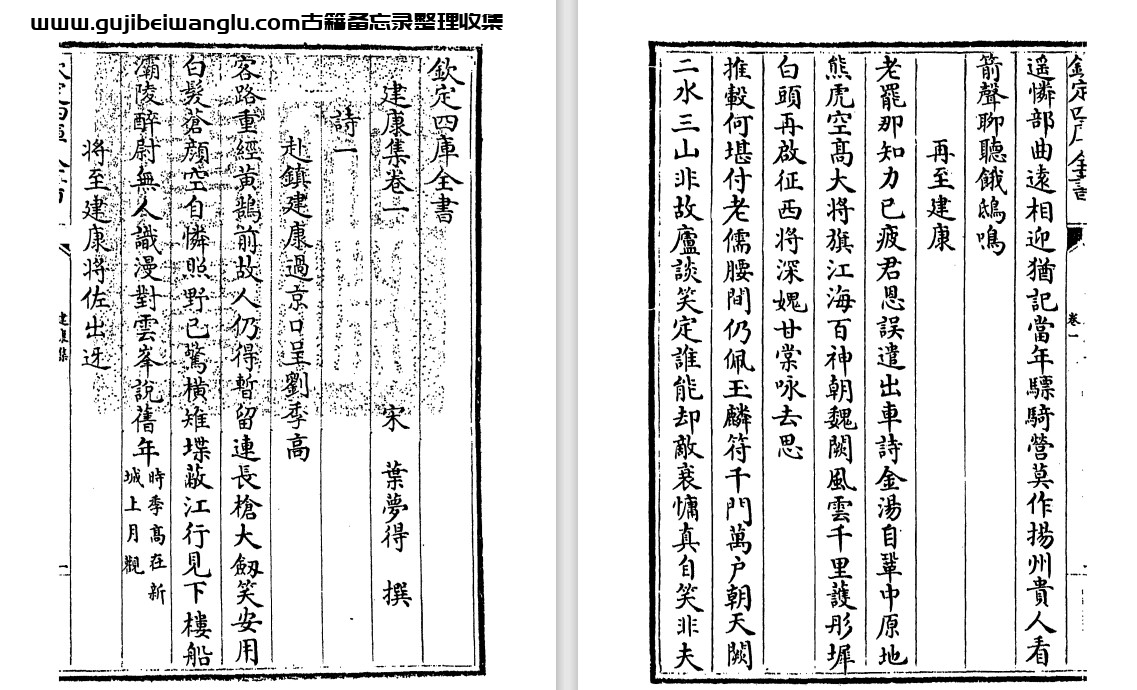 www.gujibeiwanglu.com古籍备忘录整理收集
欽定四庫全書
建康集卷一 宋 葉夢得 撰
詩一
赴鎮建康過京口呈劉季高
客路重經黃鵠前故人仍得暫留連長槍大劒笑安用
白髮蒼顏空自憐照野已驚橫雉堞蔽江行見下樓船
灞陵醉尉無人識漫對雲峯說舊年
時季髙在新
城上月觀
將至建康將佐出迓
卷一
遥憐部曲遠相迎猶記當年驃騎營莫作揚州貴人看
箭聲聊聽餓鴟鳴
再至建康
老罷那知力已疲君恩誤遣出車詩金湯自鞏中原地
熊虎空髙大將旗江海百神朝魏闕風雲千里護彤墀
白頭再啟征西將深媿甘棠咏去思
推轂何堪付老儒腰間仍佩玉麟符千門萬户朝天闕
二水三山非故廬談笑定誰能却敵衰慵真自笑非夫